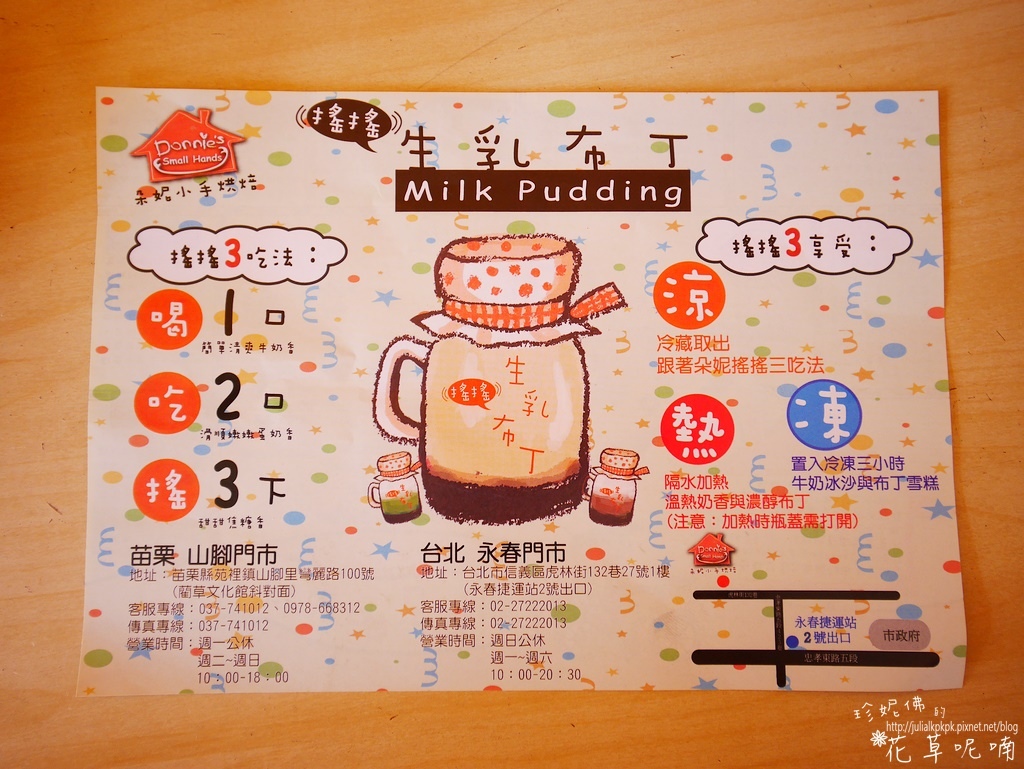 Donnie's
Small Hands
朵妮小手烘焙
搖搖
生乳布丁
Milk Pudding
搖搖3吃法：
喝 1口
簡單清爽牛奶香
吃 2口
滑順嫩嫩蛋奶香
搖 3下
甜甜焦糖香
搖搖3享受：
涼
冷藏取出
跟著朵妮搖搖三吃法
熱
隔水加熱
溫熱奶香與濃醇布丁
(注意：加熱時瓶蓋需打開)
凍
置入冷凍三小時
牛奶冰沙與布丁雪糕
生乳
搖搖
布丁
苗栗 山腳門市
地址：苗栗縣苑裡鎮山腳里彎麗路100號
(藺草文化館斜對面)
客服專線：037-741012、0978-668312
傳真專線：037-741012
營業時間：週一公休
週二~週日
10：00-18：00
台北 永春門市
地址：台北市信義區虎林街132巷27號1樓
(永春捷運站2號出口)
客服專線：02-27222013
傳真專線：02-27222013
營業時間：週日公休
週一~週六
10：00-20：30
Donnie's
Small Hands
朵妮小手烘焙
永春捷運站
2號出口
市政府
忠孝東路五段
珍妮佛的
http://julialkpkpk.pixnet.net/blog
花草呢喃